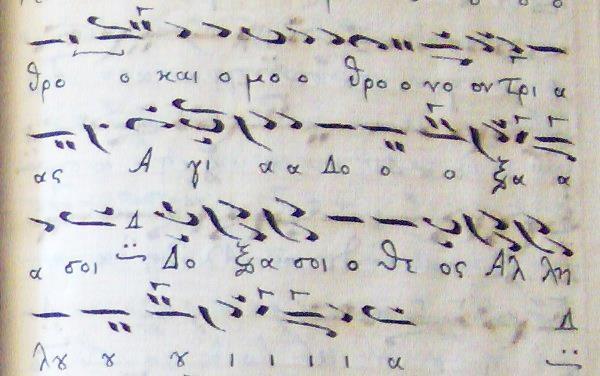 θρο ο και ο μο ο θρο ο νο ον τρι α
ας Α γι α α Δο ο ο ξα α
α σοι Δ Δο ξα σοι ο θε ος Αλ λη
λȣ ȣ ȣ ι ι ι ι α Δ